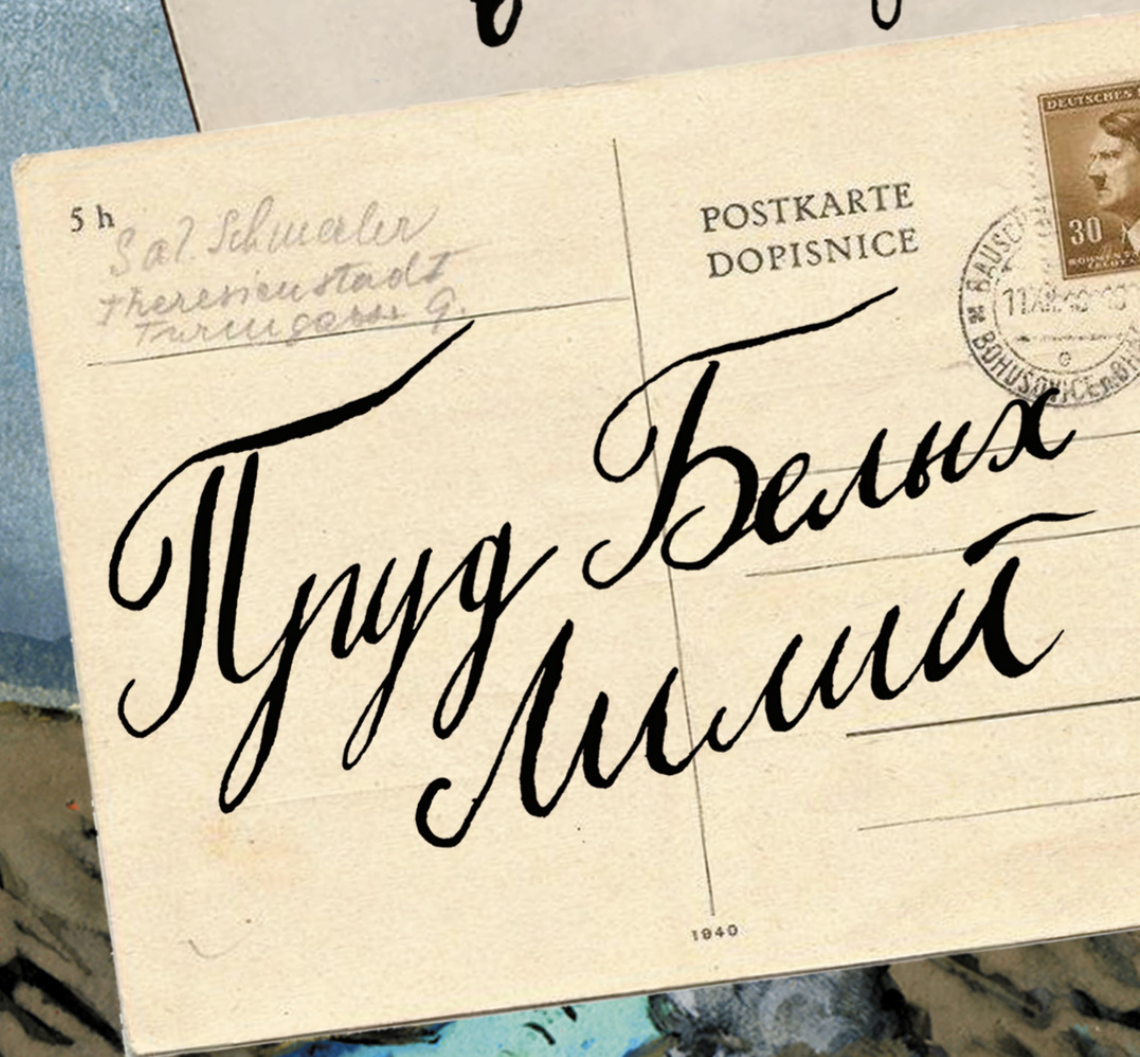 5 h
Sal. Schmerler
Theresienstadt
Turmgasse 9.
POSTKARTE
DOPISNICE
DEUTSCHES
30
BAUSCH
BOHUSOVICE
Пруд Белых
Лилий
1940